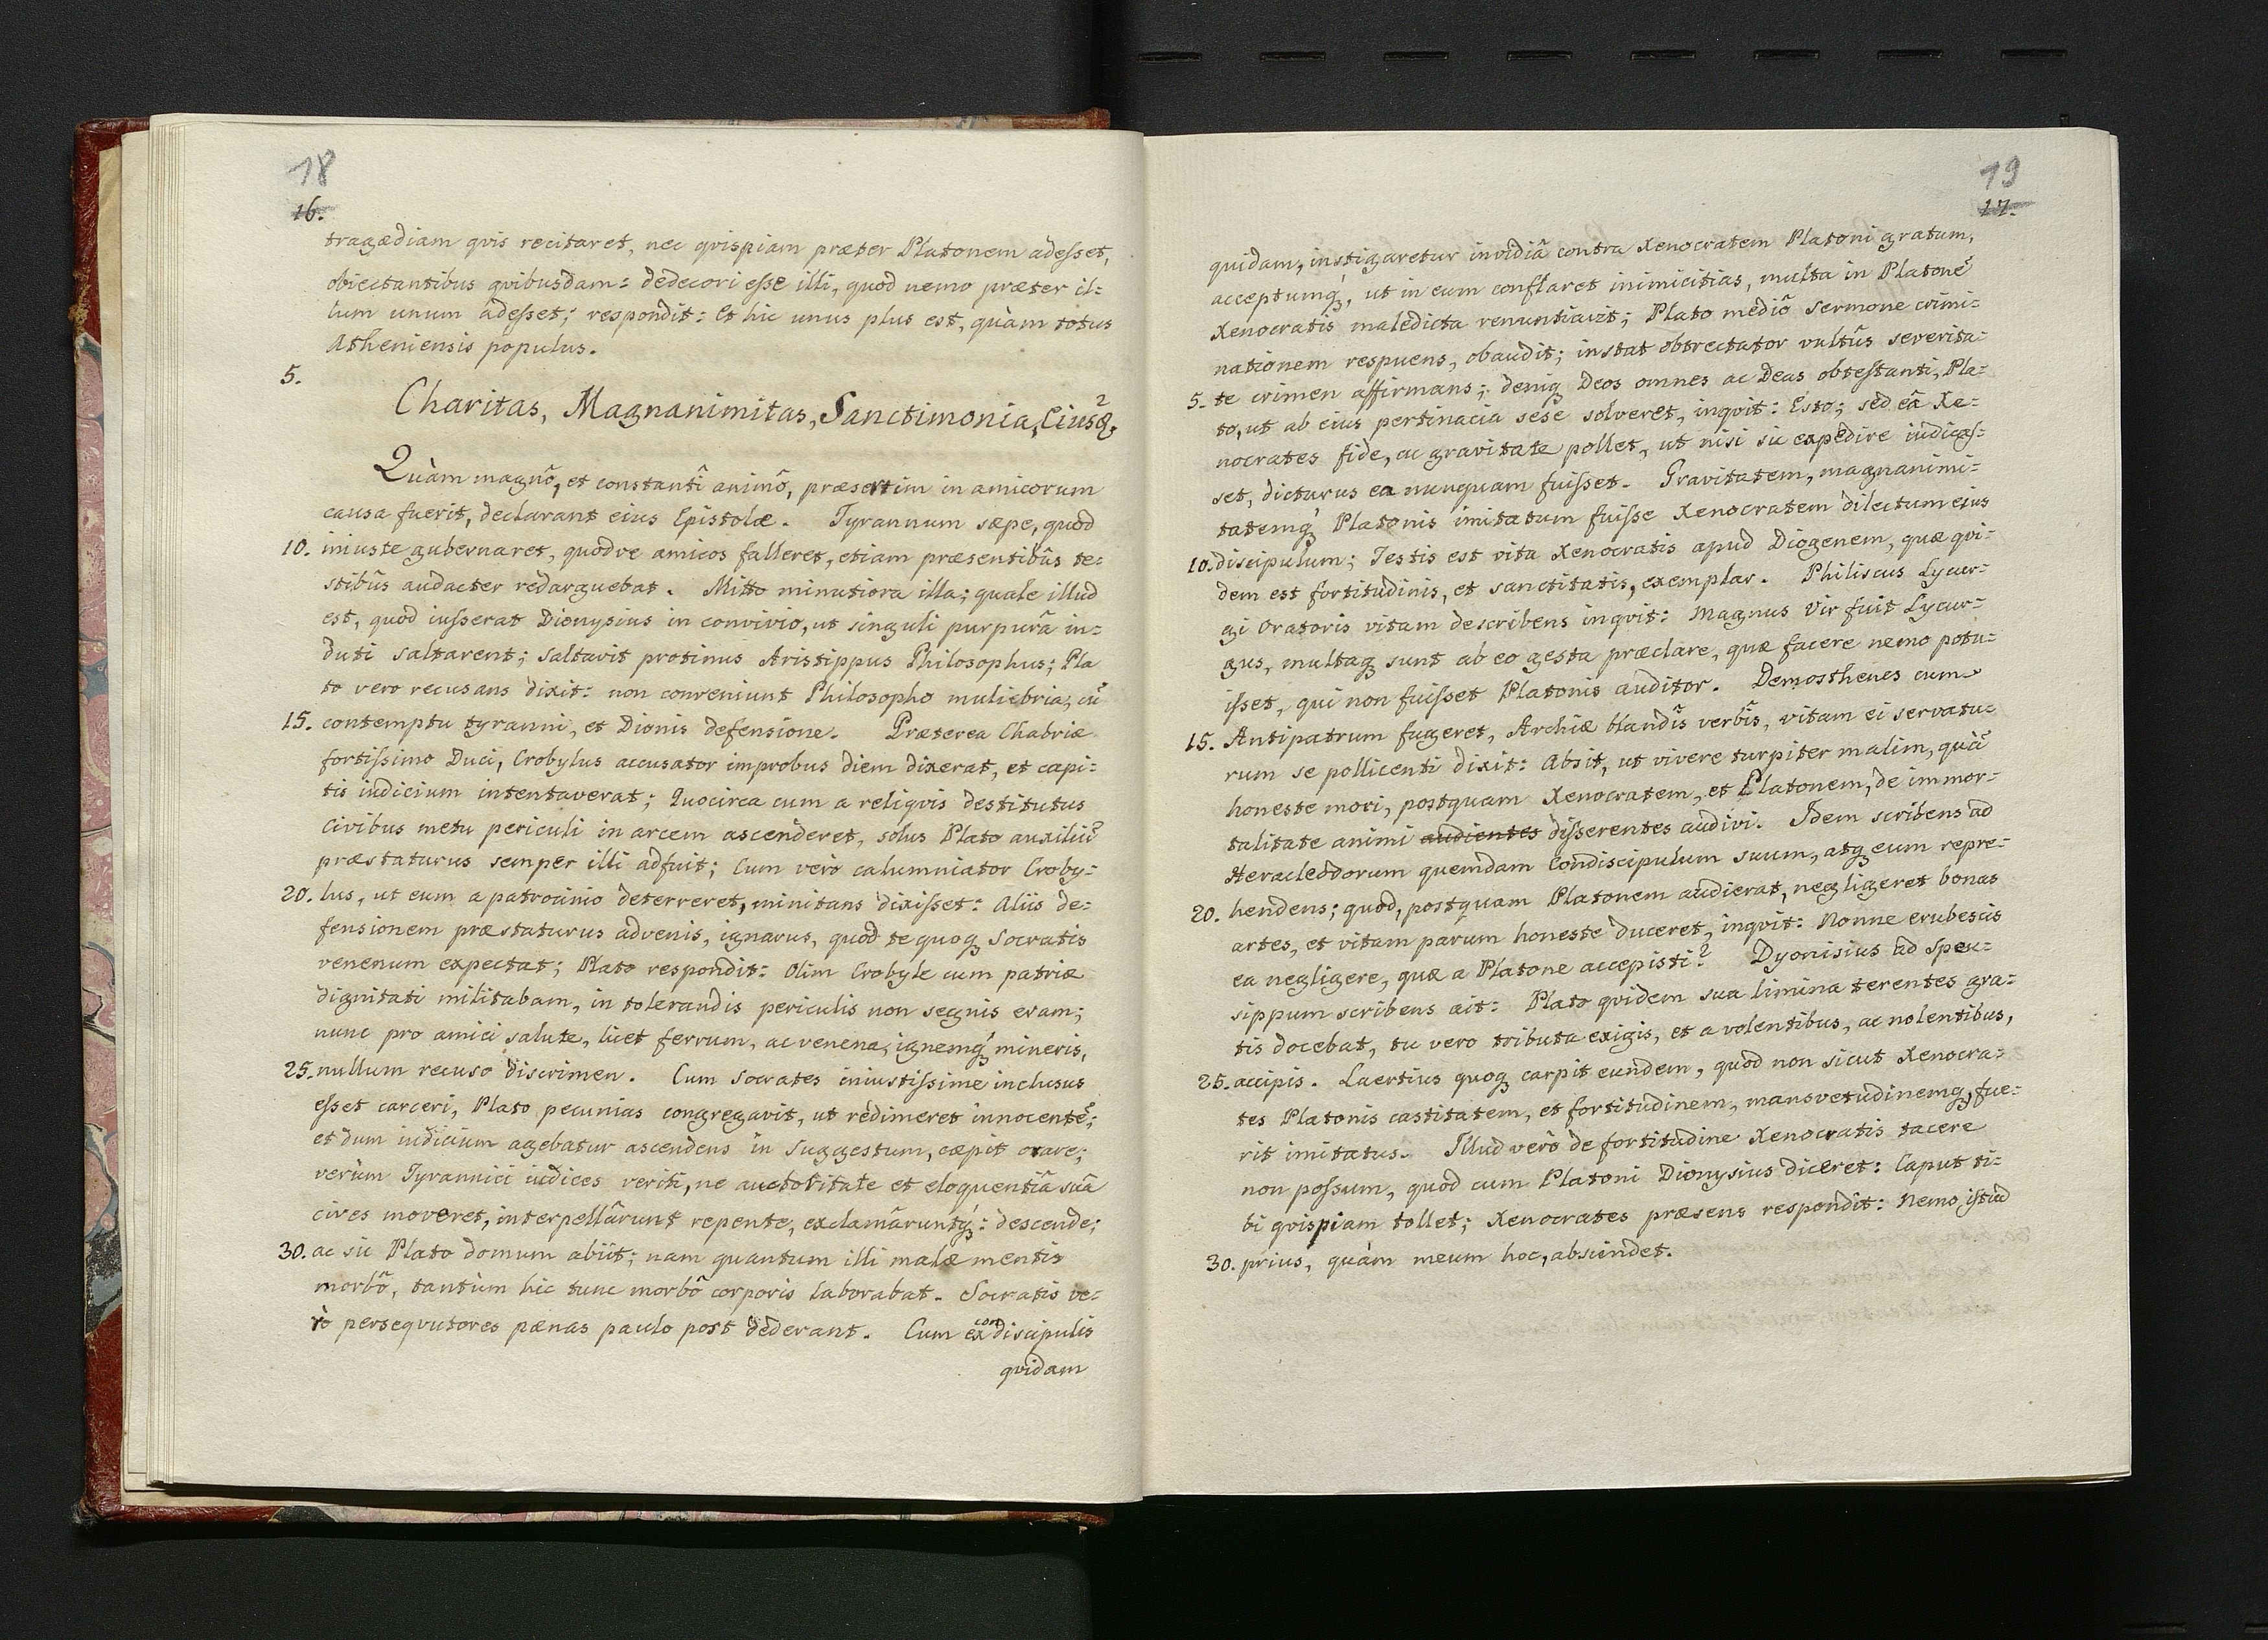 18
16.
tragædiam qvis recitaret, nec qvispiam præter Platonem adesset,
obiectantibus qvibusdam: dedecori esse illi, quod nemo præter il=
lum unum adesset; respondit: et hic unus plus est, quàm totus
Atheniensis populus.
5.
Charitas, Magnanimitas, Sanctimonia, Eiusq̃.
Quàm magnô, et constantî animô, præsertim in amicorum
causa fuerit, declarant eius Epistolæ. Tyrannum sæpe, quod
10. iniuste gubernaret, quodve amicos falleret, etiam præsentibûs te=
stibûs audacter redarguebat. Mitto minutiora illa; quale illud
est, quod iusserat Dionysius in convivio, ut singuli purpurâ in=
duti saltarent; saltavit protinus Aristippus Philosophus; Pla
to vero recusans dixit: non conveniunt Philosopho muliebria, cũ
15. contemptu tyranni, et Dionis defensione. Præterea Chabriæ
fortissimo Duci, Crobylus accusator improbus diem dixerat, et capi=
tis iudicium intentaverat; Quocirca cum a reliqvis destitutus
Civibus metu periculi in arcem ascenderet, solus Plato auxiliũ
præstaturus semper illi adfuit; Cum verò calumniator Croby=
20. lus, ut eum a patrocinio deterreret, minitans dixisset: Aliis de=
fensionem præstaturus advenis, ignarus, quod te quoq̨ Socratis
venenum expectat; Plato respondit: Olim Crobyle cum patriæ
dignitati militabam, in tolerandis periculis non segnis eram;
nunc pro amici salute, licet ferrum, ac venena, ignemq̨́ mineris,
25. nullum recuso discrimen. Cum Socrates iniustissime inclusus
esset carceri, Plato pecunias congregavit, ut redimeret innocentẽ;
et dum iudicium agebatur ascendens in suggestum, cæpit orare;
verùm Tyrannici iudices veriti, ne auctoritate et eloquentiâ suâ
cives moveret, interpellârunt repente, exclamâruntq̨́: descende;
30. ac sic Plato domum abiit; nam quantum illi malæ mentis
morbô, tantùm hic tunc morbô corporis laborabat. Socratis ve=
rò perseqvutores pænas paulo post dederant. Cum ex condiscipulis
qvidam
19
17.
quidam, instigaretur invidiâ contra Xenocratem Platoni gratum,
acceptumq̨́, ut in eum conflaret inimicitias, multa in Platonẽ
Xenocratis maledicta renuntiavit; Plato mediô sermone crimi=
nationem respuens, obaudit; instat obtrectator vultûs severita=
5. te crimen affirmans; deniq̨ Deos omnes ac Deas obtestanti, Pla=
to, ut ab eius pertinacia sese solveret, inqvit: Esto; sed eâ Xe=
nocrates fide, ac gravitate pollet, ut nisi sic expedire iudicas=
set, dicturus ea nunquam fuisset. Gravitatem, magnanimi=
tatemq̨́ Platonis imitatum fuisse Xenocratem dilectum eius
10. discipulum; Testis est vita Xenocratis apud Diogenem, quæ qvi=
dem est fortitudinis, et sanctitatis, exemplar. Philiscus Lycur=
gi Oratoris vitam describens inqvit: Magnus Vir fuit Lycur=
gus, multaq̨ sunt ab eo gesta præclare, quæ facere nemo potu=
isset, qui non fuisset Platonis auditor. Demosthenes cum
15. Antipatrum fugeret, Archiæ blandîs verbîs, vitam ei servatu=
rum se pollicenti dixit: Absit, ut vivere turpiter malim, quã
honeste mori, postquam Xenocratem, et Platonem, de immor=
talitate animi audientes disserentes audivi. Idem scribens ad
Heracleodorum quemdam Condiscipulum suum, atq̨ eum repre=
20. hendens; quod, postquam Platonem audierat, negligeret bonas
artes, et vitam parum honeste duceret, inqvit: Nonne erubescis
ea negligere, quæ a Platone accepisti? Dyonisius ad Speu=
sippum scribens ait: Plato qvidem sua limina terentes gra=
tis docebat, tu vero tributa exigis, et a volentibus, ac nolentibus,
25. accipis. Laertius quoq̨ carpit eundem, quod non sicut Xenocra=
tes Platonis castitatem, et fortitudinem, mansvetudinemq̨, fue=
rit imitatus. Illud verò de fortitudine Xenocratis tacere
non possum, quod cum Platoni Dionysius diceret: Caput ti=
bi qvispiam tollet; Xenocrates præsens respondit: Nemo istud
30. prius, quàm meum hoc, abscindet.